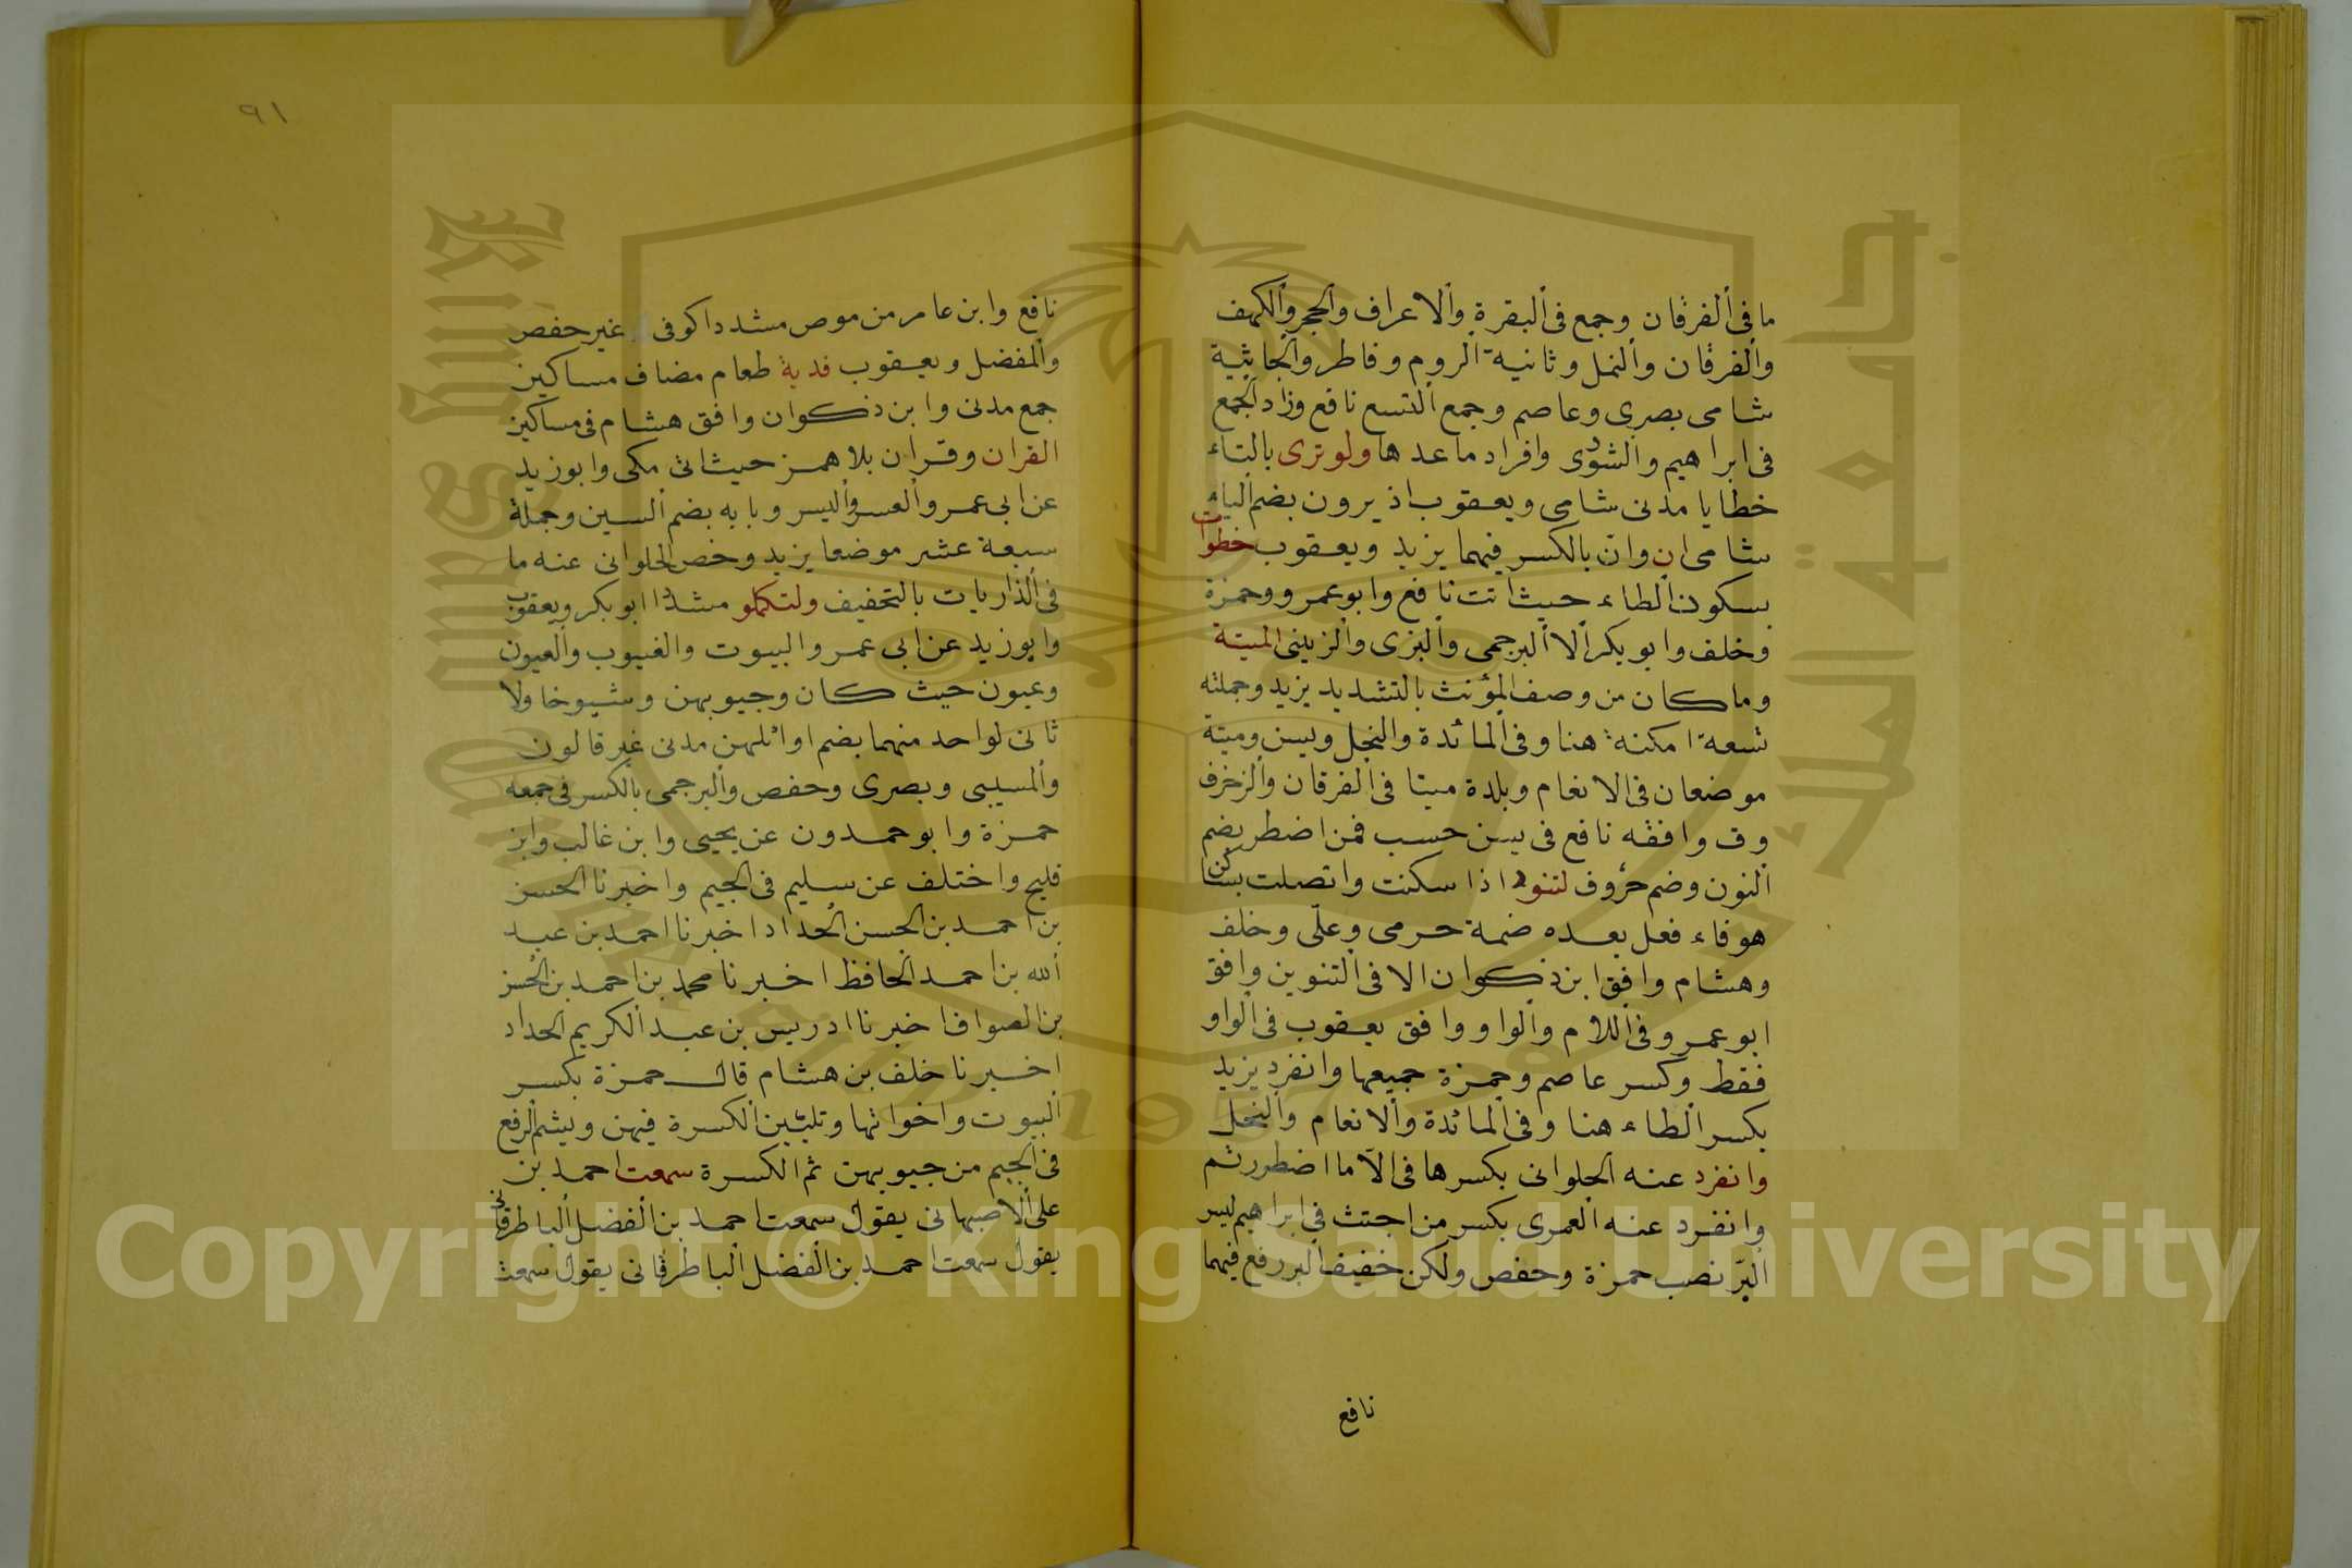 ما فى ألفرقان وجمع فى ألبقرة وألاعراف وألحجر وألكهف
وألفرقان وألنمل وثانية الروم وفاطر وألجاثية
شامى بصرى وعاصم وجمع ألتسع نافع وزاد ألجمع
فى ابراهيم والشورى وافراد ما عدها ولو ترى بالتاء
خطايا مدنى شامى ويعقوب اذ يرون بضم ألياء
شامى ان وان بالكسر فيهما يزيد ويعقوب خطوات
بسكون ألطاء حيث أتت نافع وابو عمرو وحمزة
وخلف وابو بكر ألا ألبرجمى وألبزى وألزينى الميتة
وما كان من وصف المؤنث بالتشديد يزيد وجملته
تسعة امكنة هنا وفى ألمائدة والنحل ويسن وميتة
موضعان فى الانعام وبلدة ميتا فى ألفرقان وألزخرف
وق وافقه نافع فى يسن حسب فمن اضطر بضم
ألنون وضم حروف لتنود اذا سكنت واتصلت بساكن
هو فاء فعل بعده ضمة حرمى وعلى وخلف
وهشام وافق ابن ذكوان الا فى ألتنوين وافق
ابو عمرو فى اللام وألواو ووافق يعقوب فى ألواو
فقط وكسر عاصم وحمزة جميعها وانفرد يزيد
بكسر ألطاء هنا وفى ألمائدة وألانعام وألنحل
وانفرد عنه ألحلوانى بكسرها فى الا ما اضطررتم
وانفرد عنه ألعمرى بكسر من اجتث فى ابراهيم ليس
ألبر نصب حمزة وحفص ولكن خفيف ألبر رفع فيهما
نافع
٩١
نافع وابن عامر من موص مشددا كوفى غير حفص
وألمفضل ويعقوب فدية طعام مضاف مساكين
جمع مدنى وابن ذكوان وافق هشام فى مساكين
القران وقران بلا همز حيث اتى مكى وابو زيد
عن ابى عمرو ألعسر وأليسر وبابه بضم ألسين وجملة
سبعة عشر موضعا يزيد وخص ألحلوانى عنه ما
فى ألذاريات بالتخفيف ولتكملو مشددا ابو بكر ويعقوب
وابو زيد عن ابى عمرو البيوت والغيوب وألعيون
وعيون حيث كان وجيوبهن وشيوخا ولا
ثانى لواحد منهما بضم اوائلهن مدنى غير قالون
وألمسيبى وبصرى وحفص وألبرجمى بالكسر فى جمعه
حمزة وابو حمدون عن يحيى وابن غالب وابن
فليح واختلف عن سليم فى ألجيم واخبرنا ألحسن
بن احمد بن ألحسن ألحداد اخبرنا احمد بن عبد
ألله بن احمد ألحافظ اخبرنا محمد بن احمد بن ألحسن
بن الصواف اخبرنا ادريس بن عبد ألكريم ألحداد
اخبرنا خلف بن هشام قال حمزة بكسر
ألبيوت واخواتها وتليين ألكسرة فيهن ويشم ألرفع
فى ألجيم من جيوبهن ثم الكسرة سمعت احمد بن
على ألاصبهانى يقول سمعت احمد بن ألفضل ألباطرقانى
يقول سمعت احمد بن ألفضل ألباطرقانى يقول سمعت
Copyright © King Saud University
جامعة الملك
1957